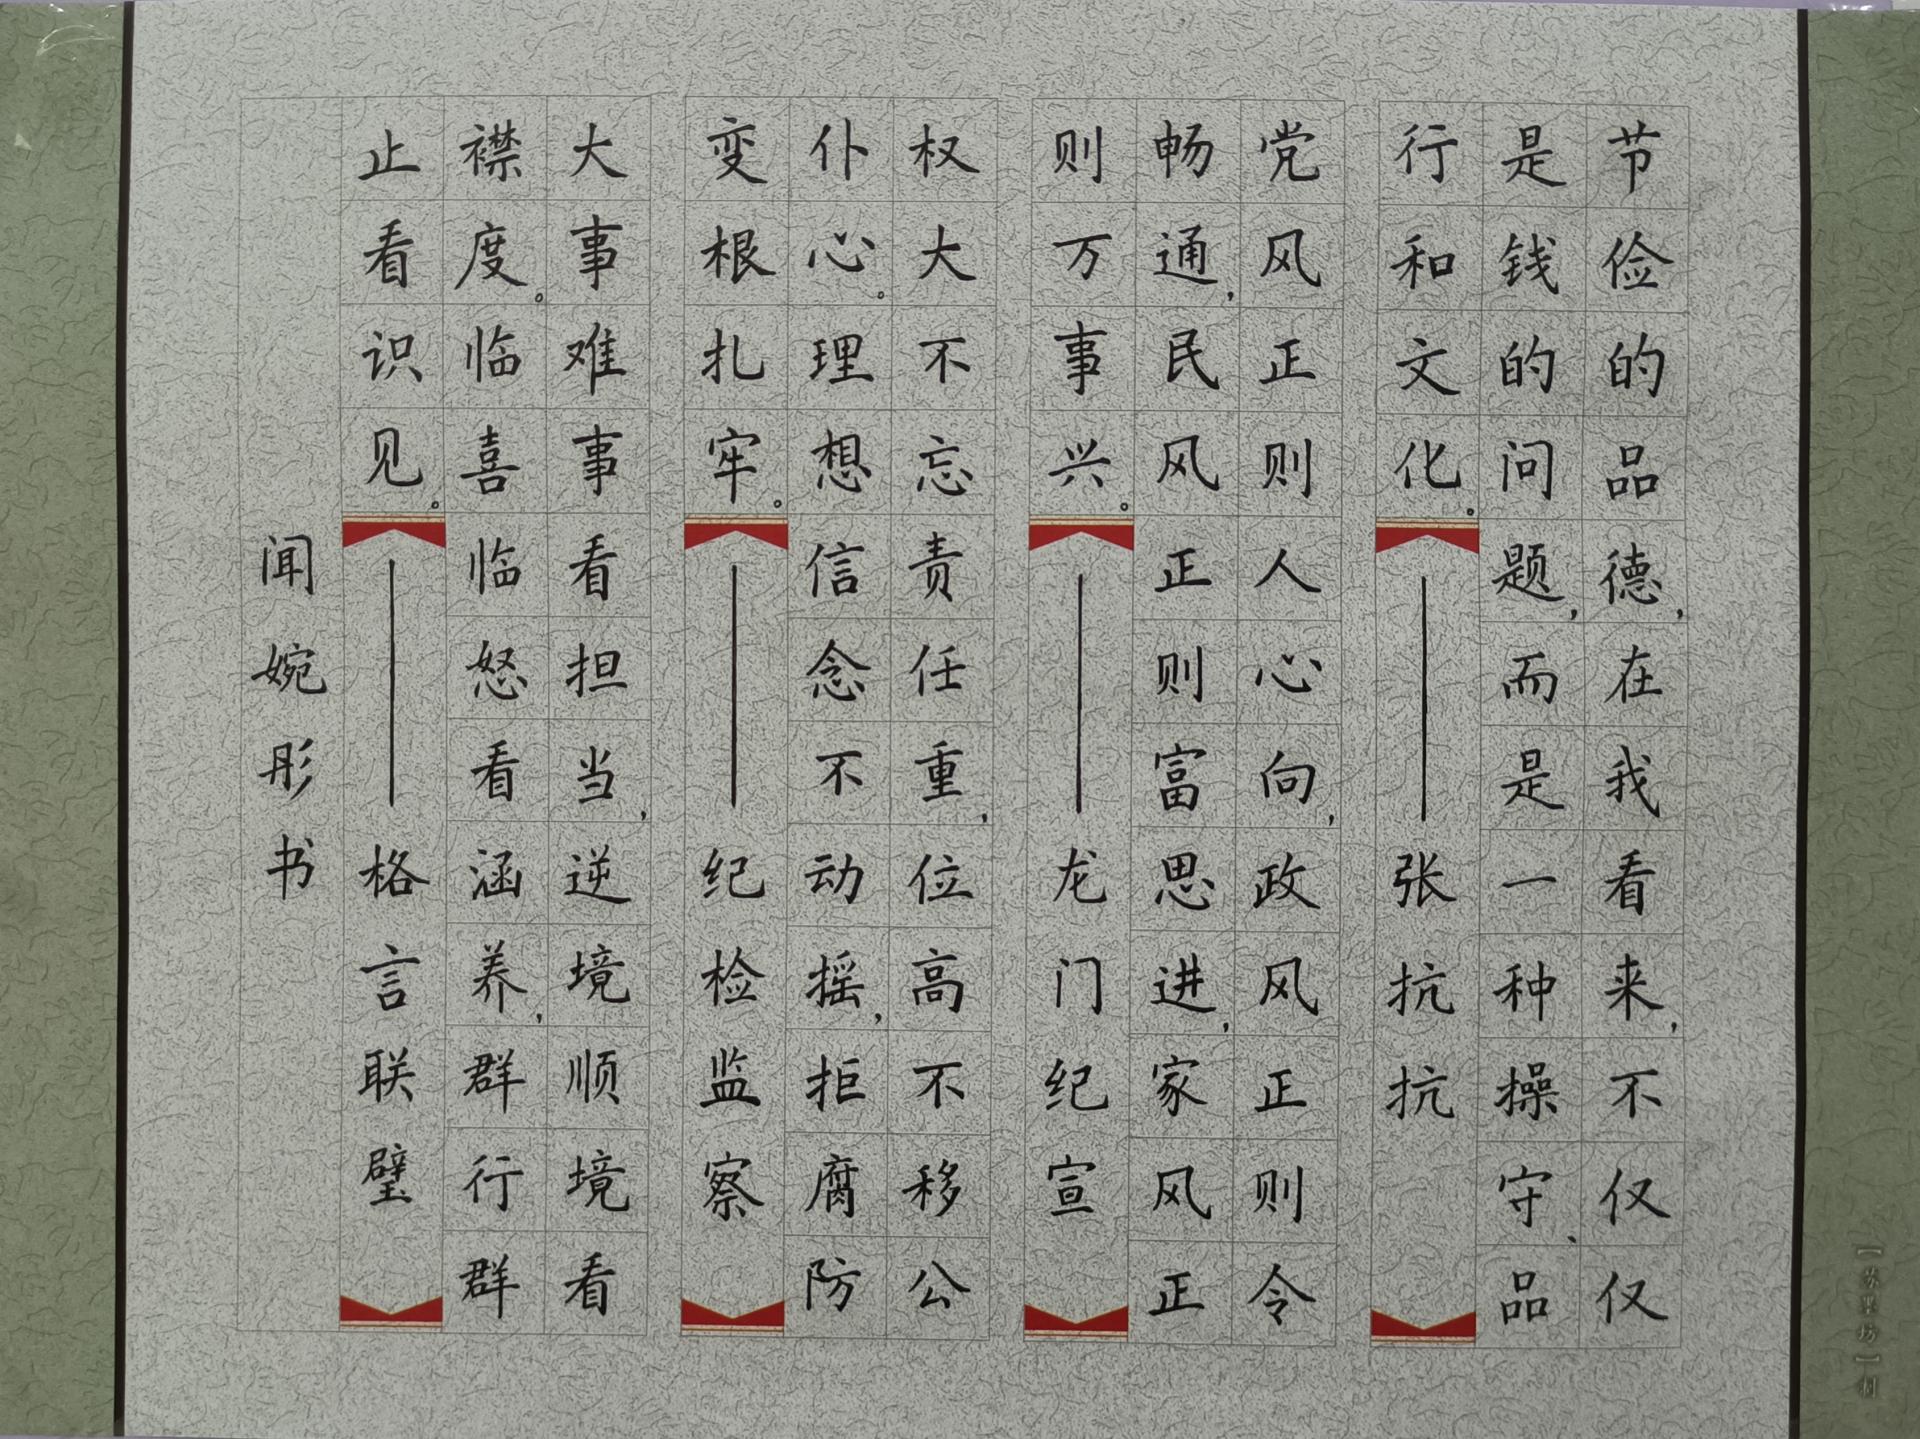 节俭的品德,在我看来,不仅仅
是钱的问题,而是一种操守、品
行和文化。——张抗抗
党风正则人心向,政风正则令
畅通,民风正则富思进,家风正
则万事兴。——龙门纪宣
权大不忘责任重,位高不移公
仆心。理想信念不动摇,拒腐防
变根扎牢。——纪检监察
大事难事看担当,逆境顺境看
襟度。临喜临怒看涵养,群行群
止看识见。——格言联璧
闻婉彤书